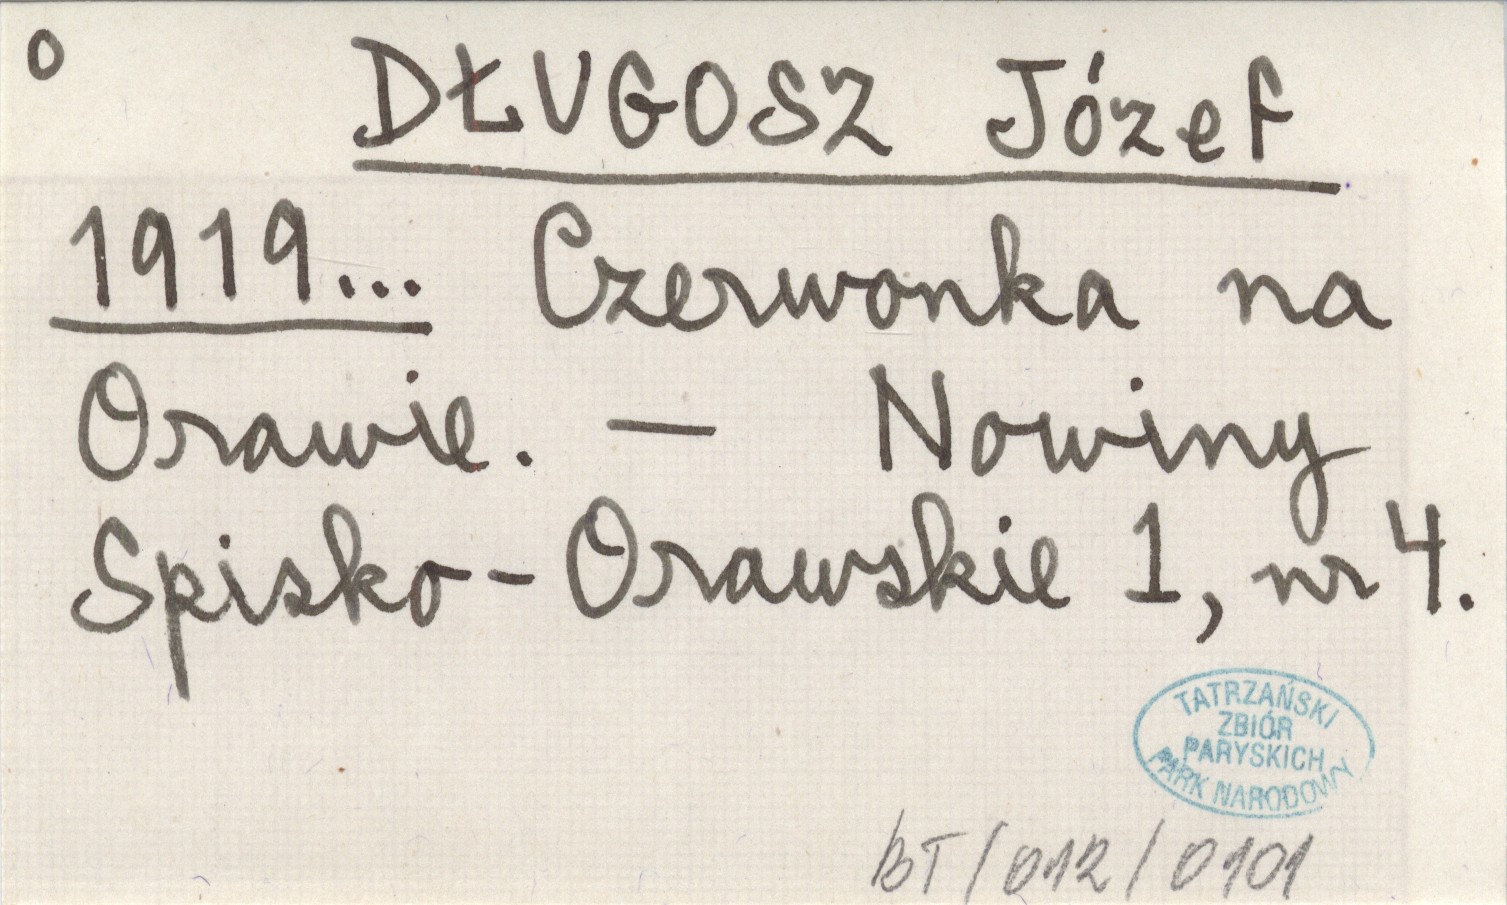 o
DŁUGOSZ Józef
1919... Czerwonka na
Orawie. — Nowiny
Spisko-Orawskie 1, nr 4.
TATRZAŃSKI
ZBIÓR
PARYSKICH
PARK NARODOWY
BT/012/0101